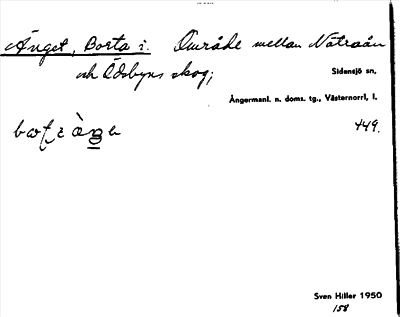 Änget, Borta i. Område mellan Nätraån
och Ödsbyns skog;
Sidensjö sn,
Ångermanl. n. doms. tg., Västernorrl, l.
449.
Sven Hiller 1950
158